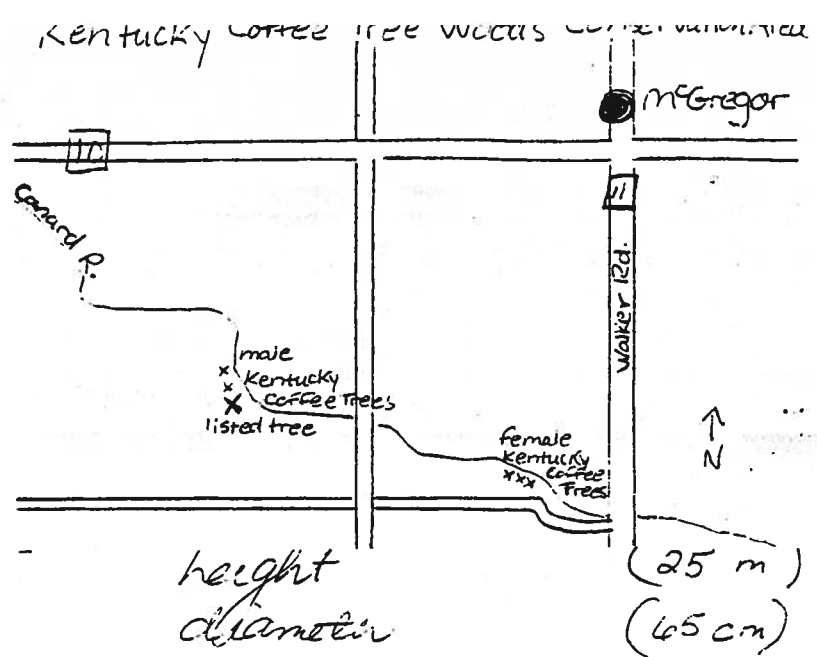 Kentucky Coffee Tree Woods Conservation Area
McGregor
10
11
Canard R.
Walker Rd.
male
Kentucky
Coffee Trees
listed tree
female
Kentucky
Coffee
Trees
N
height (25 m)
diameter (65 cm)